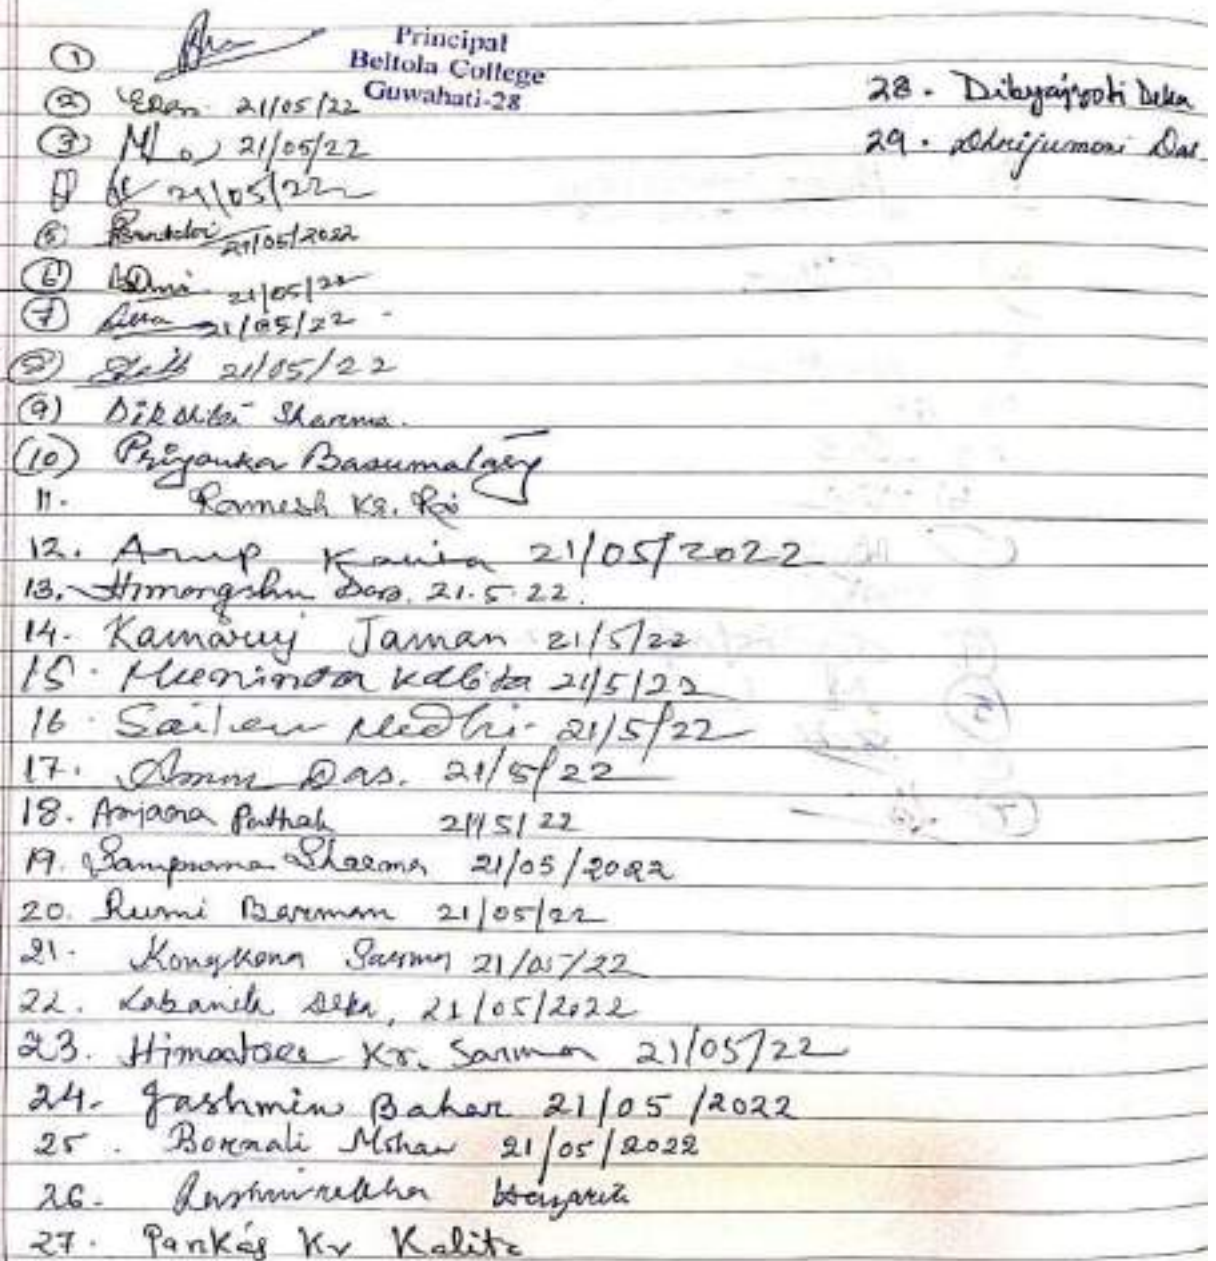 ①
Principal
Beltola College
Guwahati-28
② 21/05/22
③ 21/05/22
21/05/22
⑤ 21/05/2022
⑥ 21/05/22
⑦ 21/05/22
⑧ 21/05/22
⑨ Dikshita Sharma.
(10) Priyanka Basumatary
11. Ramesh Kr.
12. Anup 21/05/2022
13. Himangshu Das. 21.5.22.
14. Kamaruj Jaman 21/5/22
15. Kalita 21/5/22
16. Sailen Medhi 21/5/22
17. Das. 21/5/22
18. Anjana Pathak 21/5/22
19. Sampurna Sharma 21/05/2022
20. Rumi Barman 21/05/22
21. Kongkona Sarma 21/05/22
22. Deka, 21/05/2022
23. Kr. Sarma 21/05/22
24. Jashmin Bahar 21/05/2022
25. Bornali 21/05/2022
26. Rashmirekha Hazarika
27. Pankaj Kr Kalita
28. Dibyajyoti Deka
29. Dhrijumoni Das